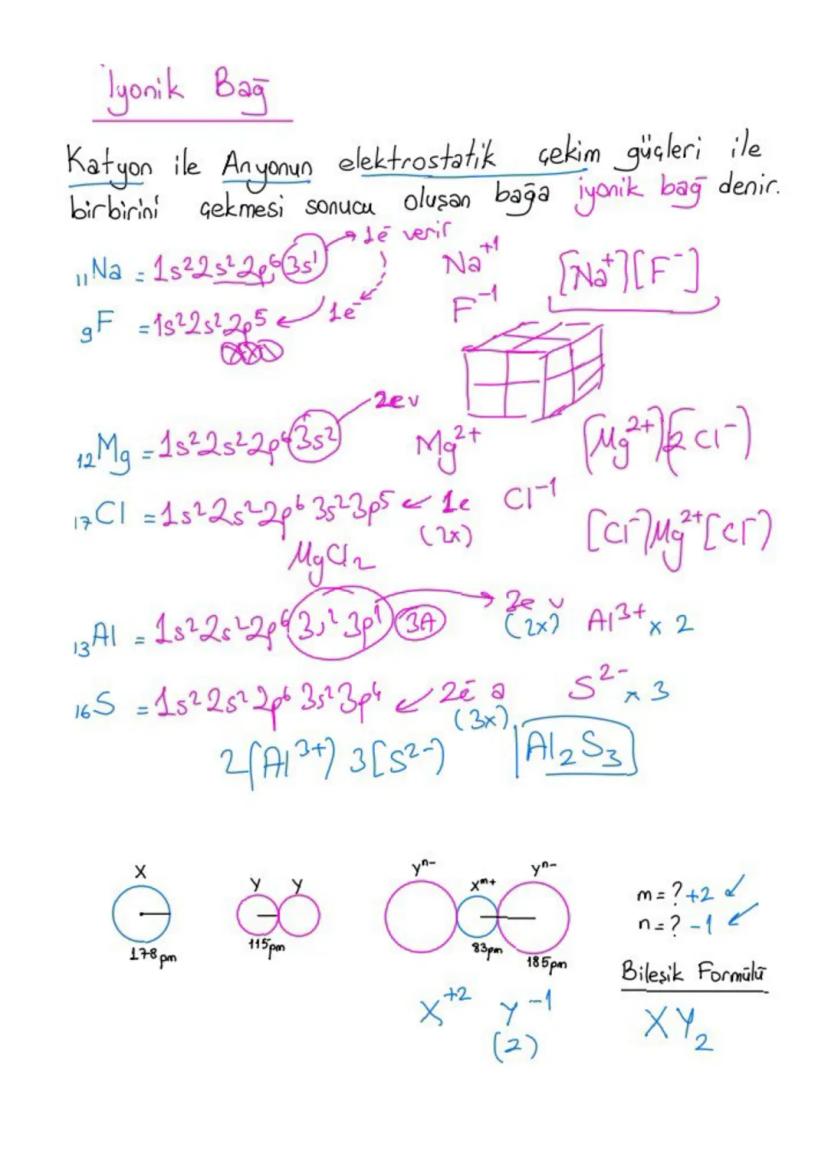 İyonik Bağ
Katyon ile Anyonun elektrostatik çekim güçleri ile
birbirini çekmesi sonucu oluşan bağa iyonik bağ denir.
₁₁Na = 1s²2s²2p⁶3s¹ 1ē verir Na⁺¹ [Na⁺][F⁻]
₉F = 1s²2s²2p⁵ 1ē F⁻¹
₁₂Mg = 1s²2s²2p⁶3s² 2e v Mg²⁺ [Mg²⁺][2Cl⁻]
₁₇Cl = 1s²2s²2p⁶3s²3p⁵ 1e Cl⁻¹
(2x) [Cl⁻]Mg²⁺[Cl⁻]
MgCl₂
₁₃Al = 1s²2s²2p⁶3s²3p¹ 3A 3e v Al³⁺ x 2
(2x)
₁₆S = 1s²2s²2p⁶3s²3p⁴ 2ē a S²⁻ x 3
(3x)
2(Al³⁺) 3[S²⁻) Al₂S₃
X Y Y Yⁿ⁻ Xᵐ⁺ Yⁿ⁻
m = ? +2
n = ? -1
178pm 115pm 83pm 185pm
Bileşik Formülü
X⁺² Y⁻¹ XY₂
(2)